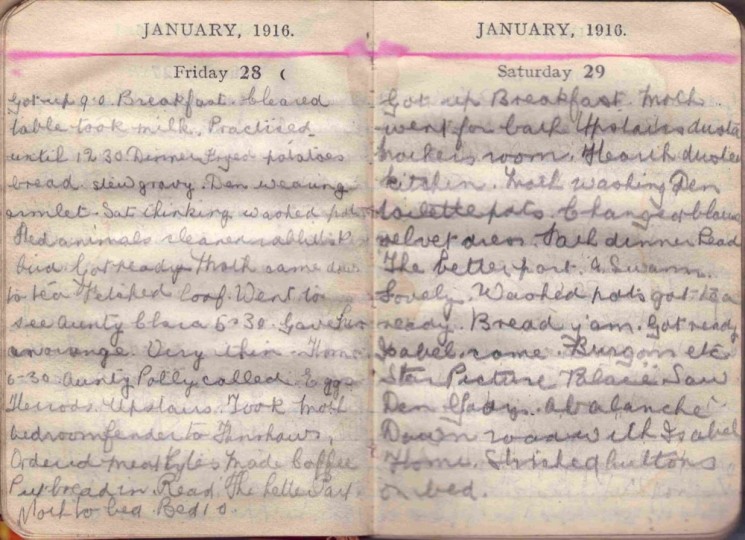 JANUARY, 1916.
Friday 28
Got up 9.0. Breakfast. Cleared
table took milk. Practised
until 12.30 Dinner Fryed potatoes
bread. stew gravy. Den wearing
armlet. Sat thinking. washed pots
Fed animals cleaned
Got ready Moth came down
to tea Fetched loaf. Went to
see Aunty Clara 5-30. Gave her
an orange. Very thin. Home
6-30. Aunty Polly called. Eggs
Herrods. Upstairs. Took Moth
bedroom fender to Fanshaws,
Ordered meat Made Coffee
Put bread in. Read The better Part
Moth to bed Bed 10.
JANUARY, 1916.
Saturday 29
Got up Breakfast. Moth
went for bath Upstairs dusted
room. Hearth dusted
kitchen. Moth washing Den
pots. Changed blouse
velvet dress. Fath dinner. Read
The better part. A. Swann.
Lovely. Washed pots got tea
ready. Bread jam. Got ready
Isabel came. Burgoin etc
Star Picture Palace Saw
Den Gady. Avalanche
Down road with Isabel
Home. Stitched buttons
on bed.